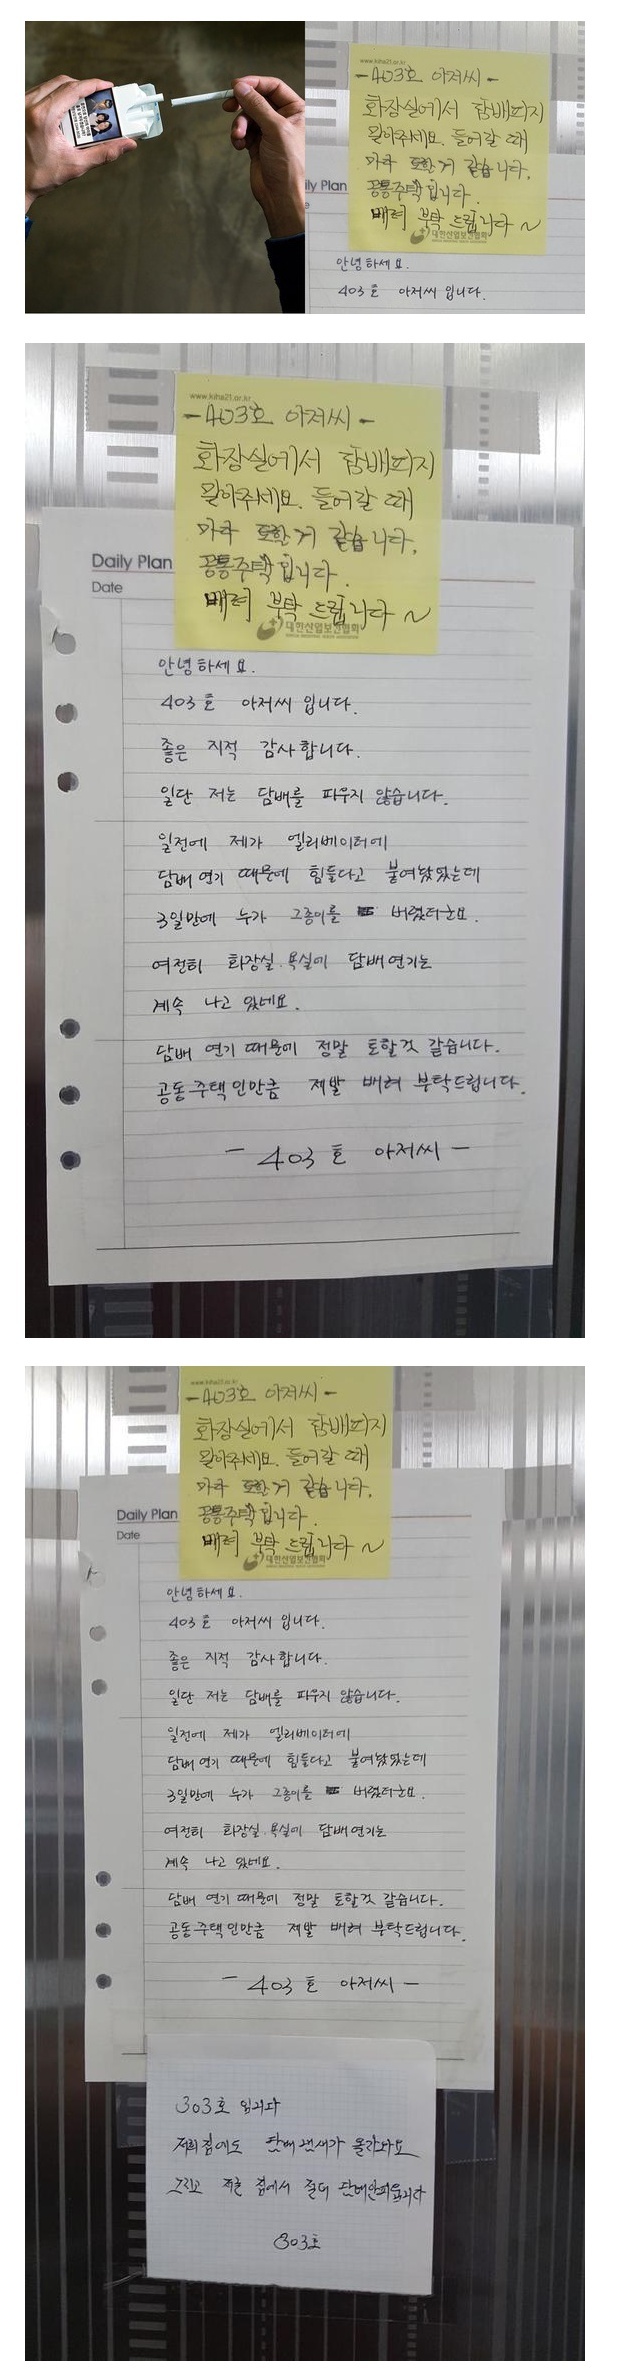 www.kiha21.or.kr
-403호 아저씨-
화장실에서 담배피지
말아주세요. 들어갈 때
마다 토할거 같습니다.
공통주택입니다.
배려 부탁 드립니다~
대한산업보건협회
ily Plan
안녕하세요.
403호 아저씨 입니다.
www.kiha21.or.kr
-403호 아저씨-
화장실에서 담배피지
말아주세요. 들어갈 때
마다 토할거 같습니다.
공통주택입니다.
배려 부탁 드립니다~
대한산업보건협회
Daily Plan
Date
안녕하세요.
403호 아저씨 입니다.
좋은 지적 감사합니다.
일단 저는 담배를 피우지 않습니다.
일전에 제가 엘리베이터에
담배 연기 때문에 힘들다고 붙여놨었는데
3일만에 누가 그종이를 버렸더군요.
여전히 화장실.욕실에 담배연기는
계속 나고 있네요.
담배 연기 때문에 정말 토할것 같습니다.
공동주택인만큼 제발 배려 부탁드립니다.
- 403호 아저씨 -
www.kiha21.or.kr
-403호 아저씨-
화장실에서 담배피지
말아주세요. 들어갈 때
마다 토할거 같습니다.
공통주택입니다.
배려 부탁 드립니다~
대한산업보건협회
Daily Plan
Date
안녕하세요.
403호 아저씨 입니다.
좋은 지적 감사합니다.
일단 저는 담배를 피우지 않습니다.
일전에 제가 엘리베이터에
담배 연기 때문에 힘들다고 붙여놨었는데
3일만에 누가 그종이를 버렸더군요.
여전히 화장실.욕실에 담배연기는
계속 나고 있네요.
담배 연기 때문에 정말 토할것 같습니다.
공동주택인만큼 제발 배려 부탁드립니다.
- 403호 아저씨 -
303호 입니다
저희집에도 담배냄새가 올라와요
그리고 저흰 집에서 절대 담배안피웁니다
303호